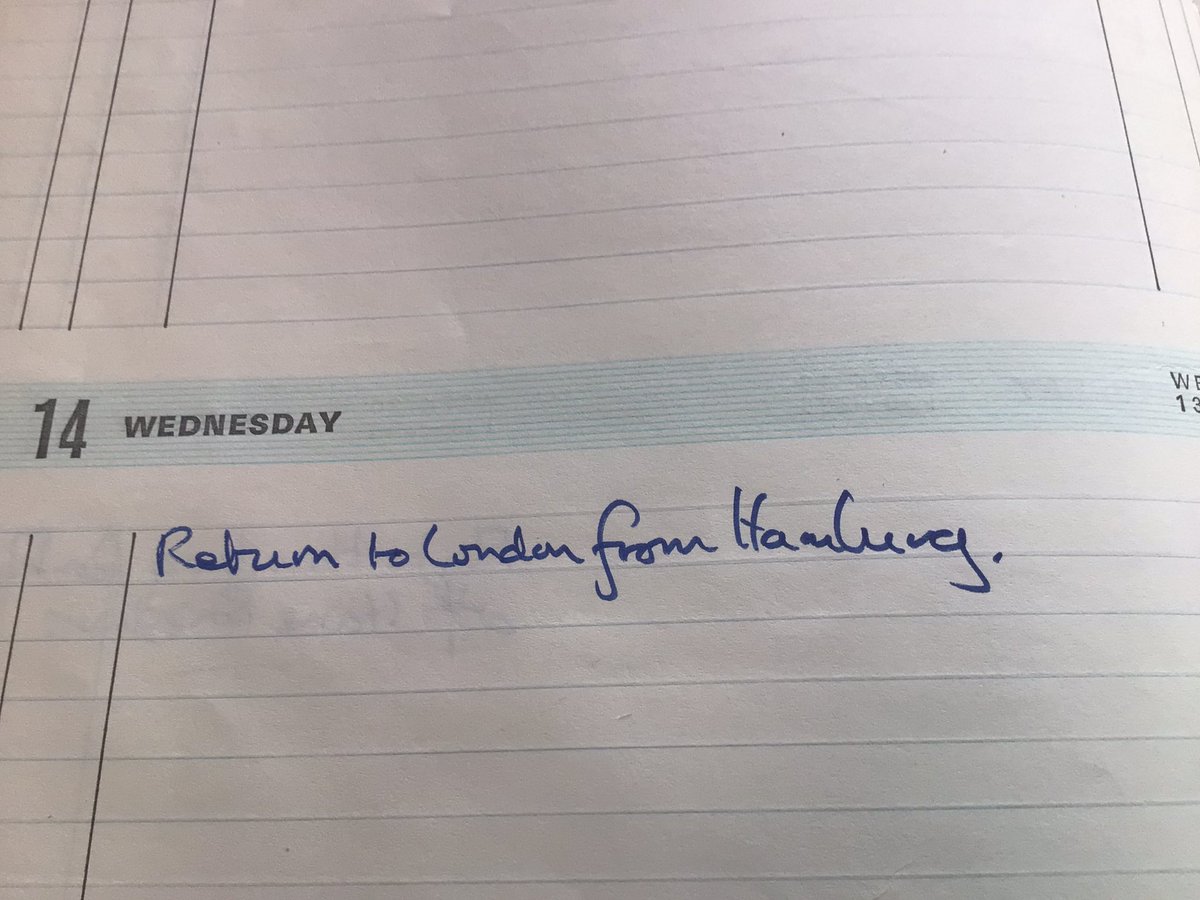 14 WEDNESDAY
Return to London from Hamburg.